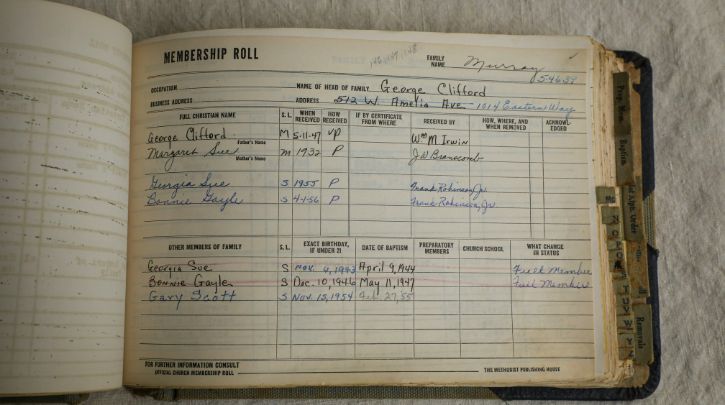 MEMBERSHIP ROLL
FAMILY NAME Murray
54638
OCCUPATION NAME OF HEAD OF FAMILY George Clifford
BUSINESS ADDRESS ADDRESS 512 W. Amelia Ave. 1014 Eastern Way
FULL CHRISTIAN NAME S.L. WHEN RECEIVED HOW RECEIVED IF BY CERTIFICATE FROM WHERE RECEIVED BY HOW, WHERE, AND WHEN REMOVED ACKNOWLEDGED
George Clifford M 5-11-47 VP Wm M Irwin
Father's Name
Margaret Sue m 1932 P J.W. Branscomb
Mother's Name
Georgia Sue S 1955 P Frank Robinson, Jr.
Bonnie Gayle S 4-1-56 P Frank Robinson, Jr.
OTHER MEMBERS OF FAMILY S.L. EXACT BIRTHDAY, IF UNDER 21 DATE OF BAPTISM PREPARATORY MEMBERS CHURCH SCHOOL WHAT CHANGE IN STATUS
Georgia Sue S Nov. 4, 1943 April 9, 1944 Full Member
Bonnie Gayle S Dec. 10, 1946 May 11, 1947 Full Member
Gary Scott S Nov. 15, 1954 Feb. 27, 55
FOR FURTHER INFORMATION CONSULT
OFFICIAL CHURCH MEMBERSHIP ROLL THE METHODIST PUBLISHING HOUSE
Prep. Mem.
Baptism
Removals